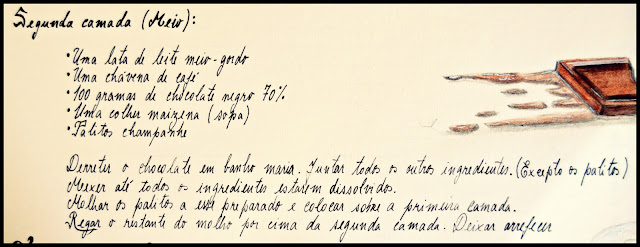 Segunda camada (Meio):
• Uma lata de leite meio-gordo
• Uma chávena de café
• 100 gramas de chocolate negro 70%
• Uma colher maizena (sopa)
• Palitos champanhe
Derreter o chocolate em banho maria. Juntar todos os outros ingredientes. (Excepto os palitos)
Mexer até todos os ingredientes estarem dissolvidos.
Molhar os palitos a este preparado e colocar sobre a primeira camada.
Regar o restante do molho por cima da segunda camada. Deixar arrefecer